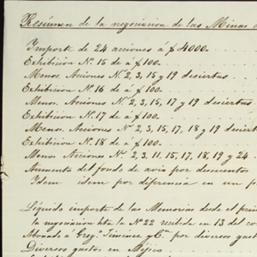 Resúmen de la negociacion de las Minas
Importe de 24 acciones a $ 4000.
Exhibicion N.º 15 de a $ 100.
Menos. Acciones N. 2, 3, 15, y 19 desiertas
Exhibicion N.º 16 de a $ 100.
Menos. Acciones N. 2, 3, 15, 17 y 19 desiertas
Exhibicion N.º 17 de a $ 100.
Menos. Acciones N.º 2, 3, 15, 17, 18 y 19 desiert
Exhibicion N.º 18 de a $ 100.
Menos Acciones N.º 2, 3, 11, 15, 17, 18, 19 y 24
Aumento del fondo de avio por descuentos
Idem idem por diferencia en un p
Líquido importe de las Memorias desde el prim
la negociacion hta la N.º 22 recibida en 13 del co
Abonado a Greg. Jimenez y C.ª por diversos gast
Diversos gastos en Méjico